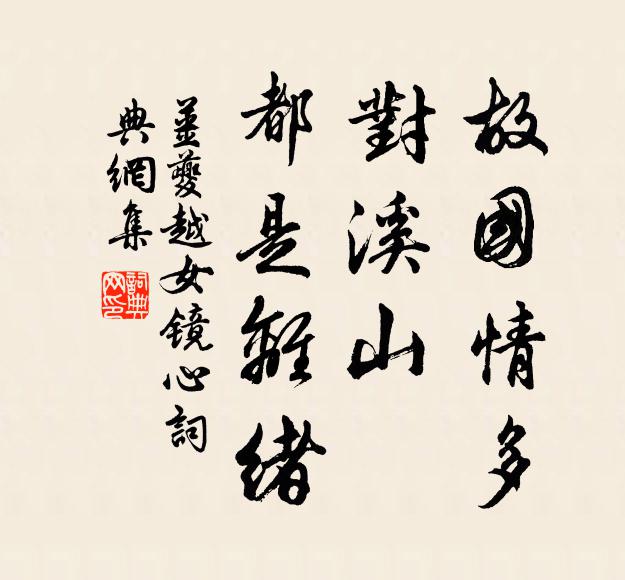 故國情多
對溪山
都是離緒
姜夔越女鏡心詞
典網集
詞典
网印